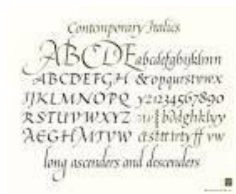 Contemporary Italics
ABCDE abcdefghijklmn
ABCDEFGH & opqurstvwx
IJKLMNOPQ yz1234567890
RSTUVWXYZ bdghklvy
AEGHMTVW
long ascenders and descenders